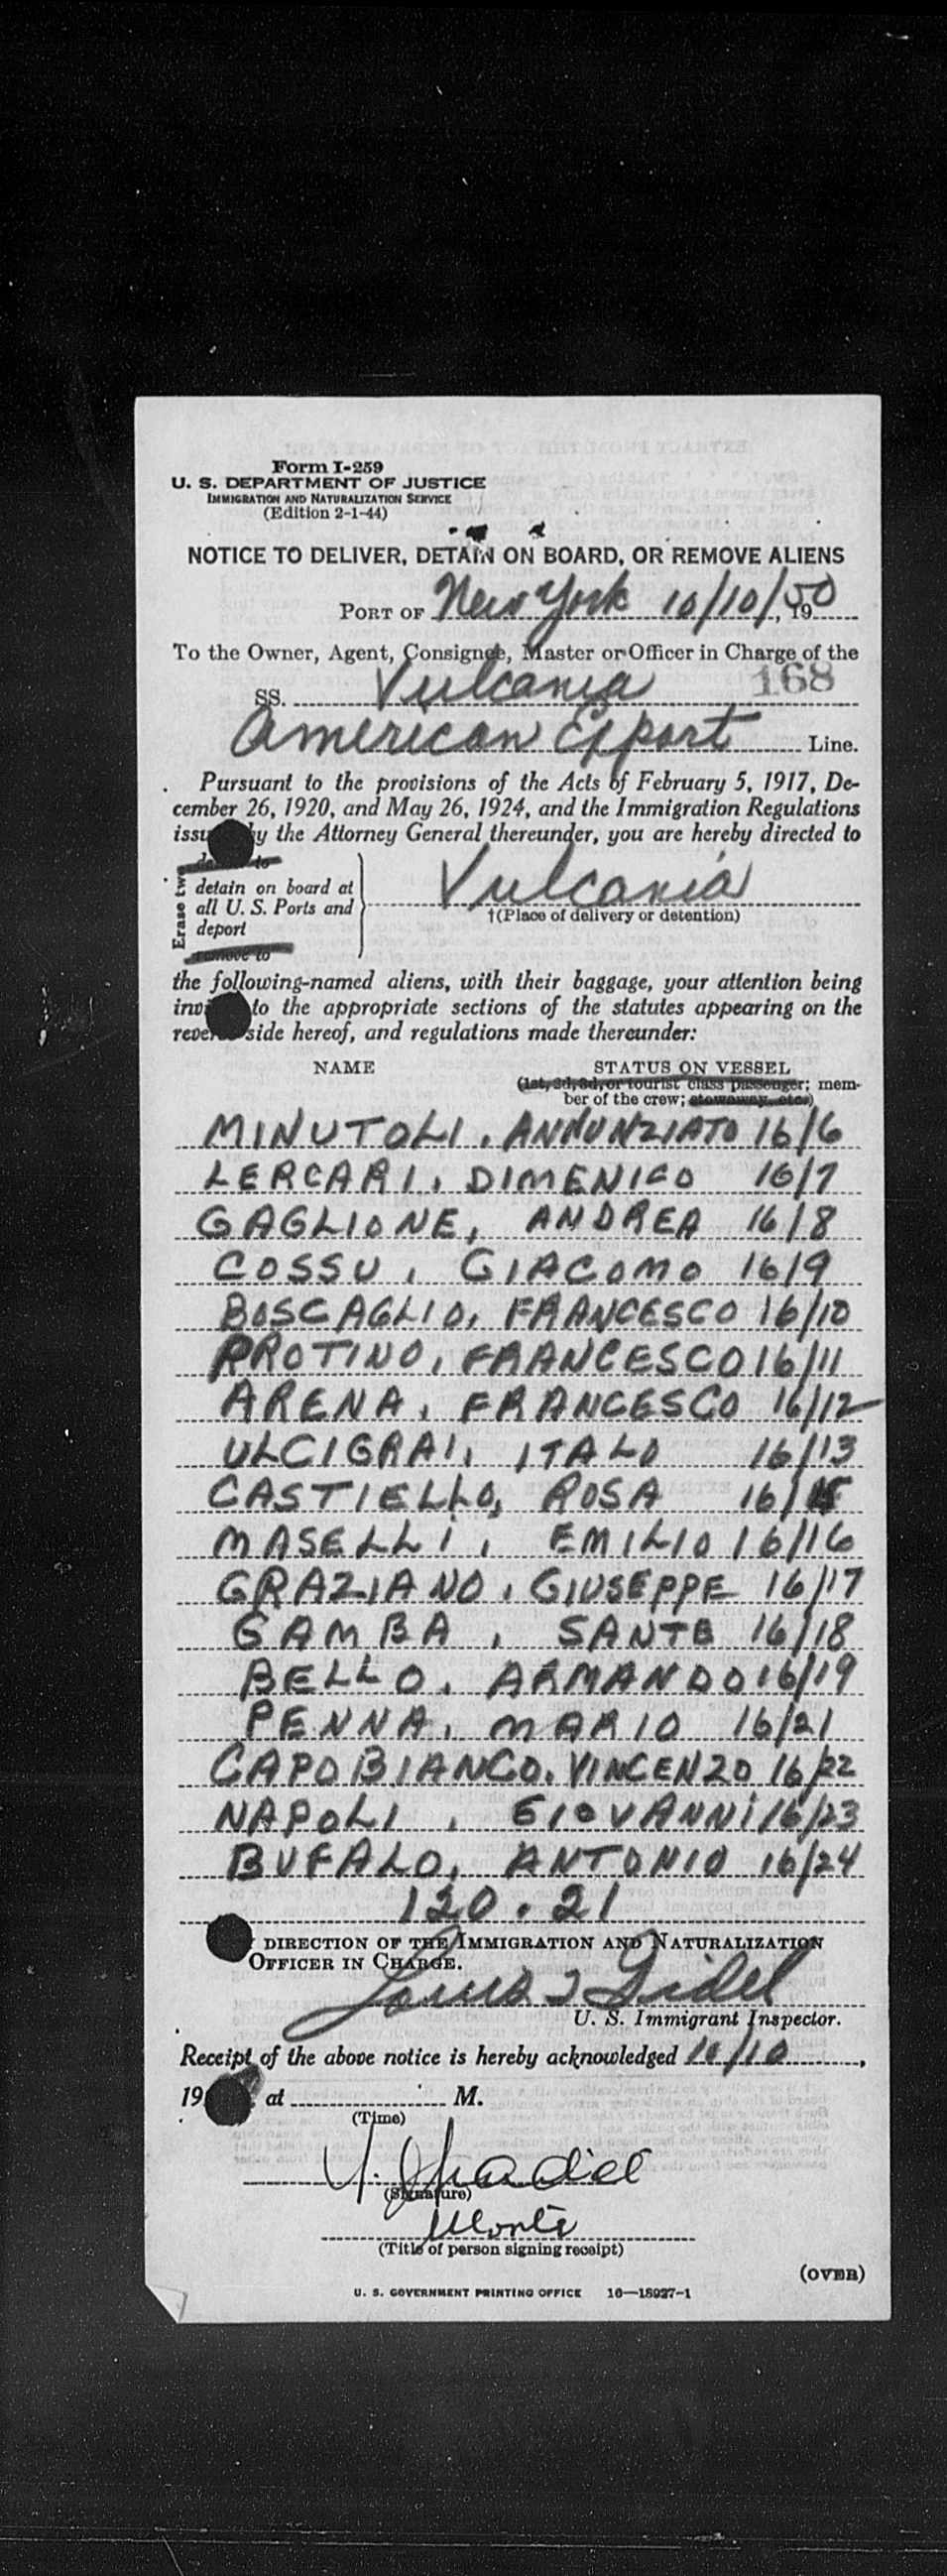 Form I-259
U. S. DEPARTMENT OF JUSTICE
IMMIGRATION AND NATURALIZATION SERVICE
(Edition 2-1-44)
NOTICE TO DELIVER, DETAIN ON BOARD, OR REMOVE ALIENS
PORT OF New York 10/10/, 1950
To the Owner, Agent, Consignee, Master or Officer in Charge of the
SS. Vulcania 168
American Export Line.
Pursuant to the provisions of the Acts of February 5, 1917, De-
cember 26, 1920, and May 26, 1924, and the Immigration Regulations
by the Attorney General thereunder, you are hereby directed to
Erase two
detain on board at
all U. S. Ports and
deport
remove to
Vulcania
†(Place of delivery or detention)
the following-named aliens, with their baggage, your attention being
to the appropriate sections of the statutes appearing on the
side hereof, and regulations made thereunder:
NAME STATUS ON VESSEL
(1st, 2d, 3d, or tourist class passenger; mem-
ber of the crew; stowaway, etc.)
MINUTOLI, ANNUNZIATO 16/6
LERCARI, DIMENICO 16/7
GAGLIONE, ANDREA 16/8
COSSU, GIACOMO 16/9
BOSCAGLIO, FRANCESCO 16/10
PROTINO, FRANCESCO 16/11
ARENA, FRANCESCO 16/12
ULCIGRAI, ITALO 16/13
CASTIELLO, ROSA 16/15
MASELLI, EMILIO 16/16
GRAZIANO, GIUSEPPE 16/17
GAMBA, SANTE 16/18
BELLO, ARMANDO 16/19
PENNA, MARIO 16/21
CAPOBIANCO, VINCENZO 16/22
NAPOLI, GIOVANNI 16/23
BUFALO, ANTONIO 16/24
120.21
DIRECTION OF THE IMMIGRATION AND NATURALIZATION
OFFICER IN CHARGE.
Louis Gidel
U. S. Immigrant Inspector.
Receipt of the above notice is hereby acknowledged 10/10,
19 at M.
(Time)
(Signature)
(Title of person signing receipt)
(OVER)
U. S. GOVERNMENT PRINTING OFFICE 16—18927-1